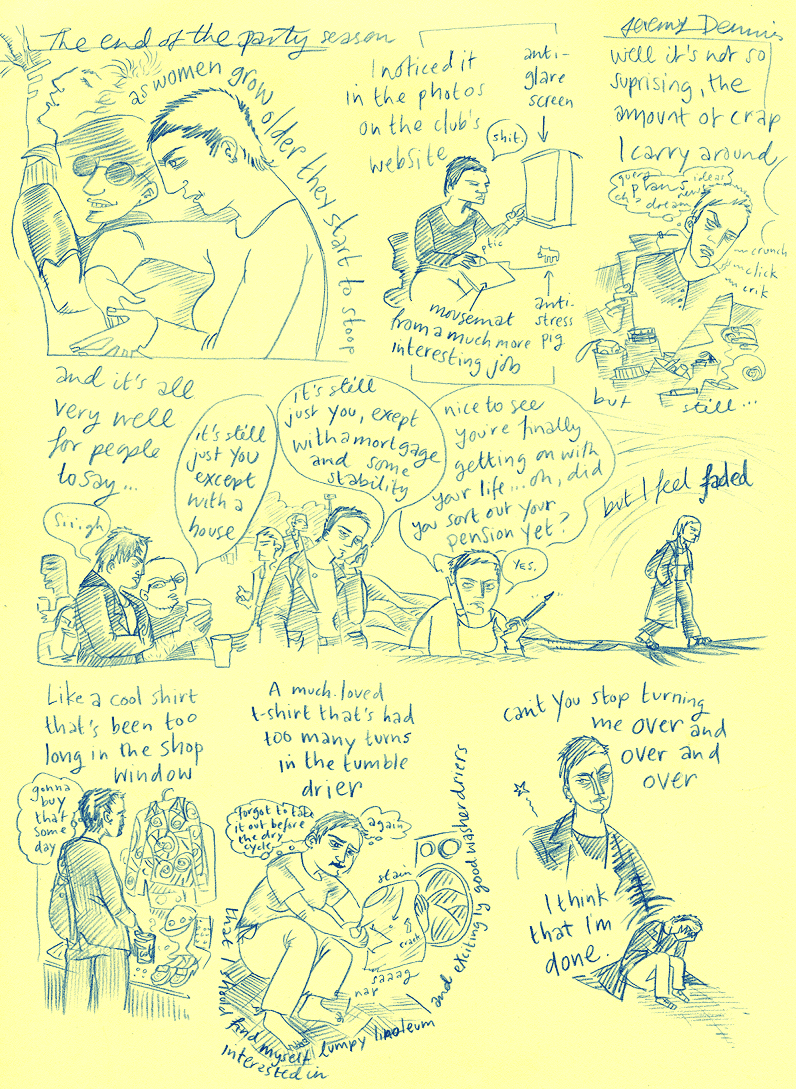 The end of the party season
Jeremy Dennis
as women grow older they start to stoop
I noticed it
in the photos
on the club's
website
anti-
glare
screen
shit.
ptic
mousemat
from a much more
interesting job
anti-
stress
pig
well it's not so
suprising, the
amount of crap
I carry around
ideas
plans
news
dream
crunch
click
crik
but still...
and it's all
very well
for people
to say...
Siiigh
it's still
just you
except
with a
house
it's still
just you, exept
with a mortgage
and some
stability
nice to see
you're finally
getting on with
your life... oh, did
you sort out your
pension yet?
YES.
but I feel faded
Like a cool shirt
that's been too
long in the shop
window
gonna
buy
that
some
day
A much-loved
t-shirt that's had
too many turns
in the tumble
drier
forgot to take
it out before
the dry
cycle
again
stain
crack
saaag
nap
that I should find myself
interested in
lumpy linoleum
and excitingly good washer driers
can't you stop turning
me over and
over and
over
I think
that I'm
done.